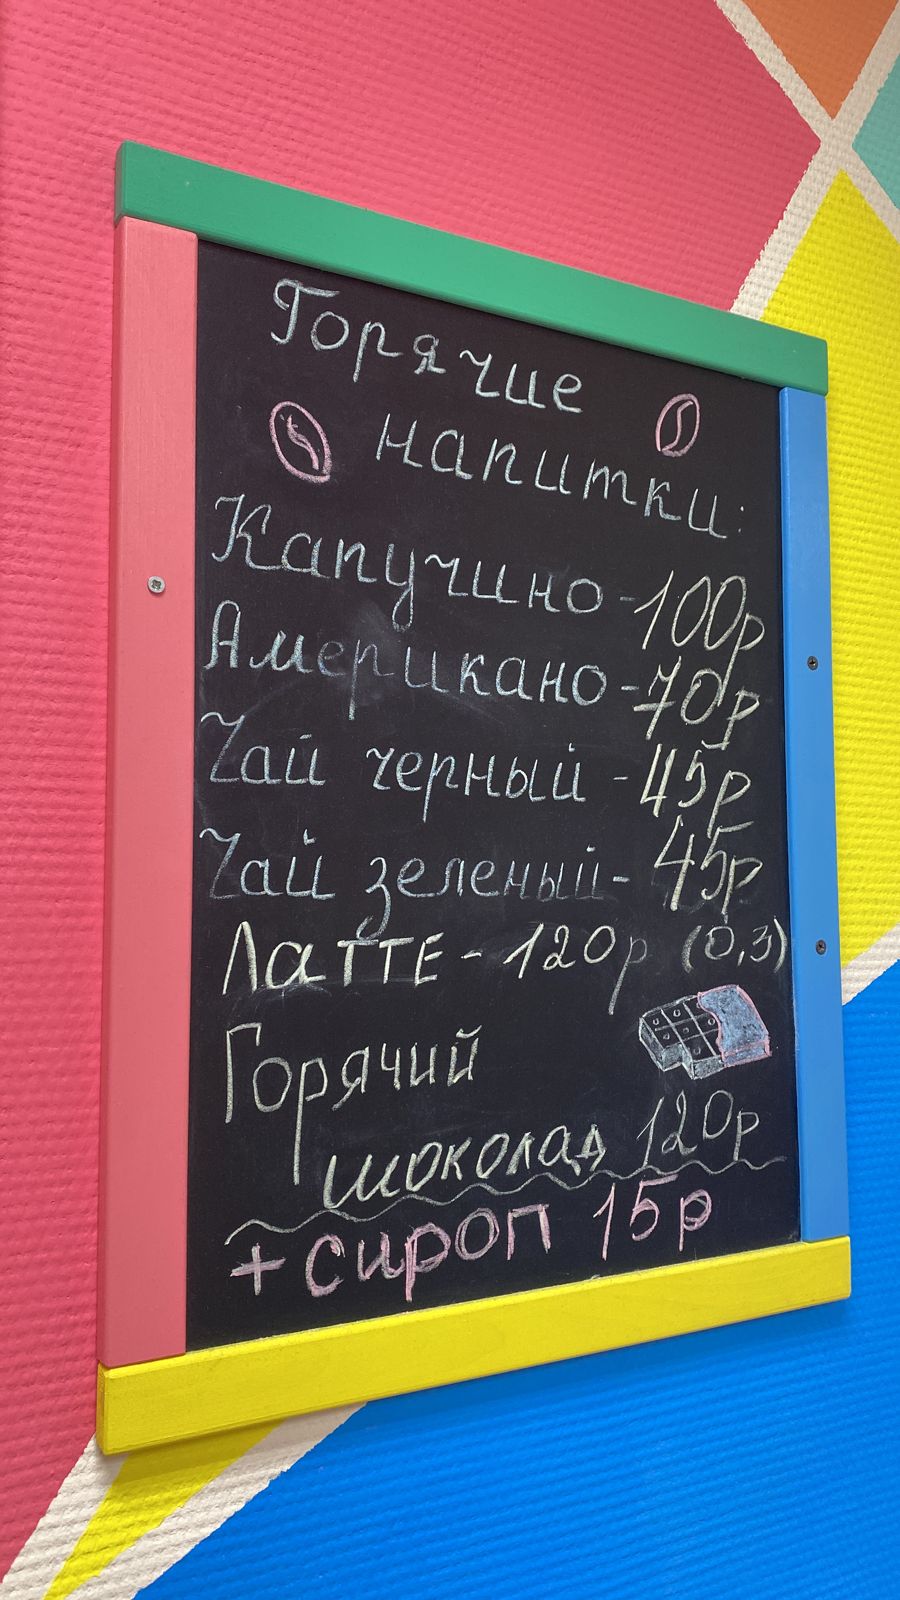 Горячие
напитки:
Капучино - 100р
Американо - 70р
Чай черный - 45р
Чай зеленый - 45р
Латте - 120р (0,3)
Горячий
шоколад 120р
+ сироп 15р